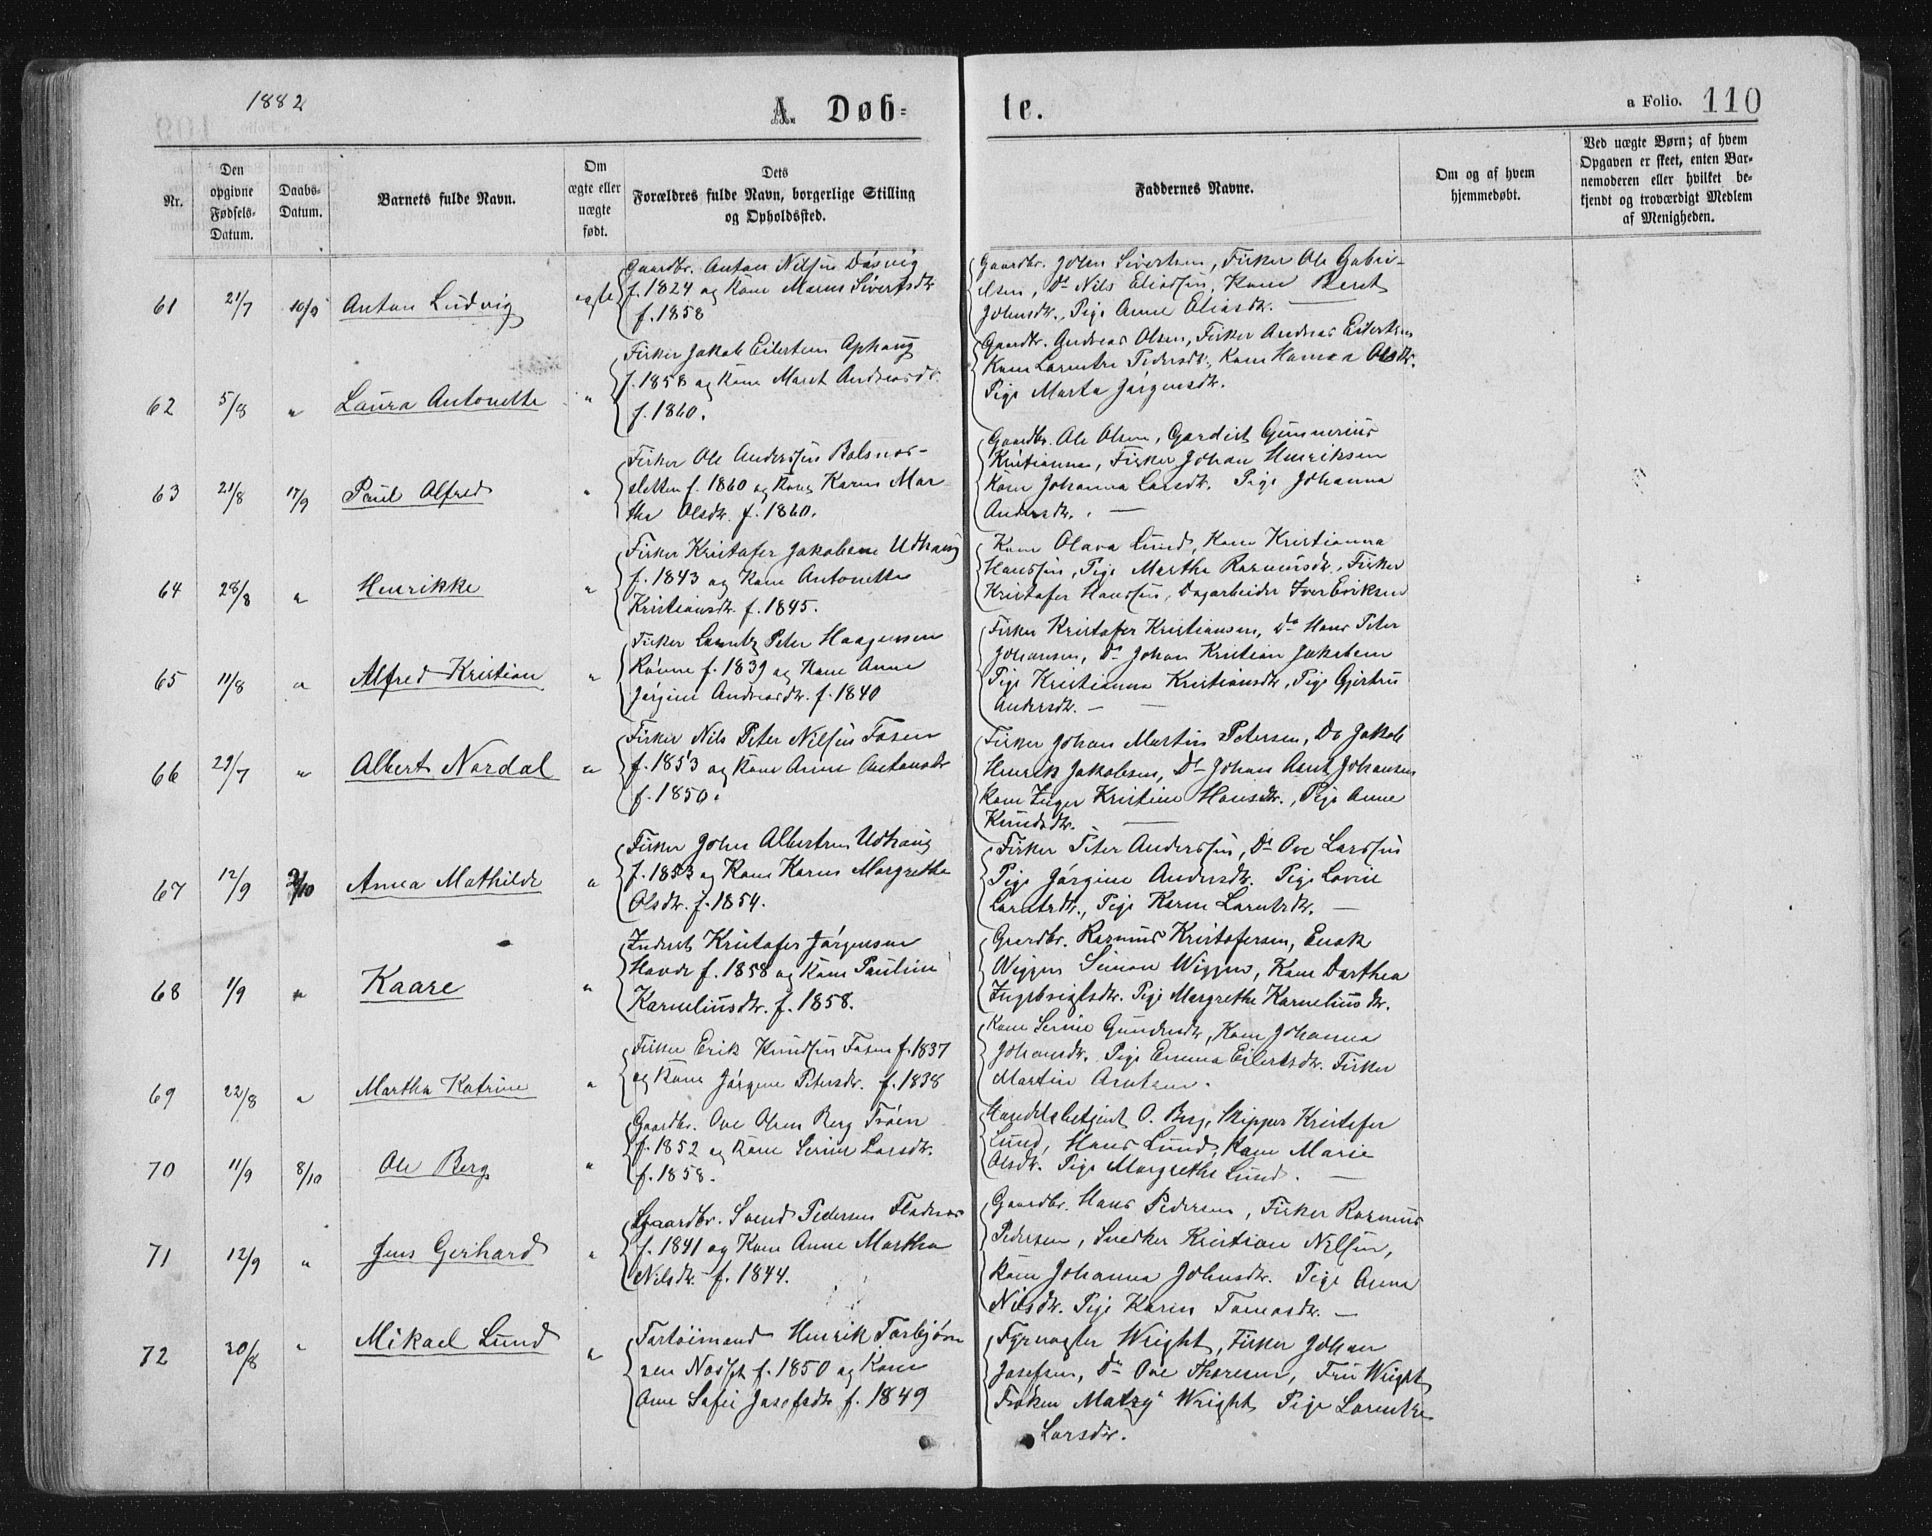 1882
A. Døb=
te.
a Folio. 110
Nr.
Den opgivne Fødsels-Datum.
Daabs-Datum.
Barnets fulde Navn.
Om ægte eller uægte født.
Dets Forældres fulde Navn, borgerlige Stilling og Opholdssted.
Faddernes Navne.
Om og af hvem hjemmedøbt.
Ved uægte Børn; af hvem Opgaven er skeet, enten Barnemoderen eller hvilket bekjendt og troværdigt Medlem af Menigheden.
61 21/7 10/9 Anton Ludvig ægte
Gaardbr. Anton Nilsen Døsvig
f. 1824 og Kone Maren Sivertsdtr
f. 1858
Gaardbr. John Sivertsen, Fisker Ole Gabri-
elsen, Do Nils Eliassen, Kone Beret
Johnsdtr., Pige Anne Eliasdtr.
62 5/8 " Laura Antonette "
Fisker Jakob Eilertsen Ophaug
f. 1858 og Kone Maret Andreasdtr.
f. 1860.
Gaardbr. Andreas Olsen, Fisker Andreas Eilertsen
Kone Larentse Pedersdtr., Kone Hanna Olsdtr.
Pige Marta Jørgensdtr.
63 21/8 17/9 Paul Alfred "
Fisker Ole Anderssen Balsnes-
sletten f. 1860 og Kone Karen Mar-
tha Olsdtr. f. 1860.
Gaardbr. Ole Olsen, Gardist Gunnerius
Kristiansen, Fisker Johan Henriksen
Kone Johanna Larsdtr. Pige Johanna
Andersdtr.
64 28/8 " Henrikke "
Fisker Kristofer Jakobsen Udhaug
f. 1843 og Kone Antonette
Kristiansdtr. f. 1845.
Kone Olava Lund, Kone Kristianna
Hanssen, Pige Martha Rasmusdtr., Fisker
Kristofer Hanssen, Dagarbeider Iver Eriksen
65 11/8 " Alfred Kristian "
Fisker Lorentz Peter Haagensen
Rønne f. 1839 og Kone Anne
Jørgine Andreasdtr. f. 1840
Fisker Kristofer Kristiansen, Do Hans Peter
Johansen, Do Johan Kristian Jakobsen
Pige Kristianna Kristiansdtr, Pige Gjertru
Andersdtr.
66 29/7 " Albert Nordal "
Fisker Nils Peter Nilsen Fosen
f. 1853 og Kone Anne Antonsdtr
f. 1850.
Fisker Johan Martin Petersen, Do Jakob
Henrik Jakobsen, Do Johan Arnt Johansen
Kone Inger Kristine Hansdtr., Pige Anne
Knudsdtr.
67 12/9 2/10 Anna Mathilde "
Fisker John Albertsen Udhaug
f. 1853 og Kone Karen Margrethe
Olsdtr. f. 1854.
Fisker Peter Anderssen, Do Ove Larssen
Pige Jørgine Andersdtr. Pige Lovise
Larntsdtr., Pige Karen Larntsdtr.
68 1/9 " Kaare "
Inderst Kristofer Jørgensen
Hovde f. 1858 og Kone Pauline
Karneliusdtr. f. 1858.
Gaardbr. Rasmus Kristofersen, Enok
Wiggen Simon Wiggen, Kone Darthea
Ingebrigtsdtr. Pige Margrethe Karneliusdtr.
69 22/8 " Martha Katrine "
Fisker Erik Knudsen Fosen f. 1837
og Kone Jørgine Petersdtr. f. 1838
Kone Serine Gundersdtr, Kone Johanna
Johansdtr. Pige Emma Eilertsdtr. Fisker
Martin Arntsen.
70 11/9 8/10 Ole Berg "
Gaardbr. Ove Olsen Berg Trøen
f. 1852 og Kone Serine Larsdtr.
f. 1858.
Handelsbetjent O. Berg, Skipper Kristofer
Lund, Hans Lund, Kone Marie
Olsdtr. Pige Margrethe Lund.
71 12/9 " Jens Gerhard "
Gaardbr. Svend Pedersen Fladnes
f. 1841 og Kone Anne Martha
Nilsdtr. f. 1844.
Gaardbr. Hans Pedersen, Fisker Rasmus
Pedersen, Snedker Kristian Nilsen,
Kone Johanna Johnsdtr. Pige Anna
Nilsdtr. Pige Karen Tomasdtr.
72 20/8 " Mikael Lund "
Fartøimand Henrik Torbjørn
sen f. 1850 og Kone
Ane Sofie Josefsdtr f. 1849
Fyrvogter Wright, Fisker Johan
Josefsen, Do Ove Thoresen, Fru Wright
Frøken Matzy Wright Pige Larentse
Larsdtr.